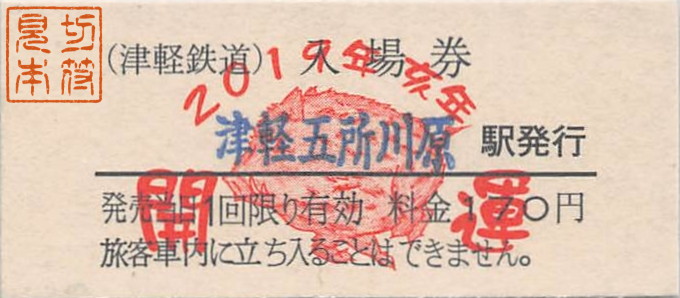 切符見本
(津軽鉄道) 入場券
2019年亥年
津軽五所川原 駅発行
開運
発売当日1回限り有効 料金170円
旅客車内に立ち入ることはできません。